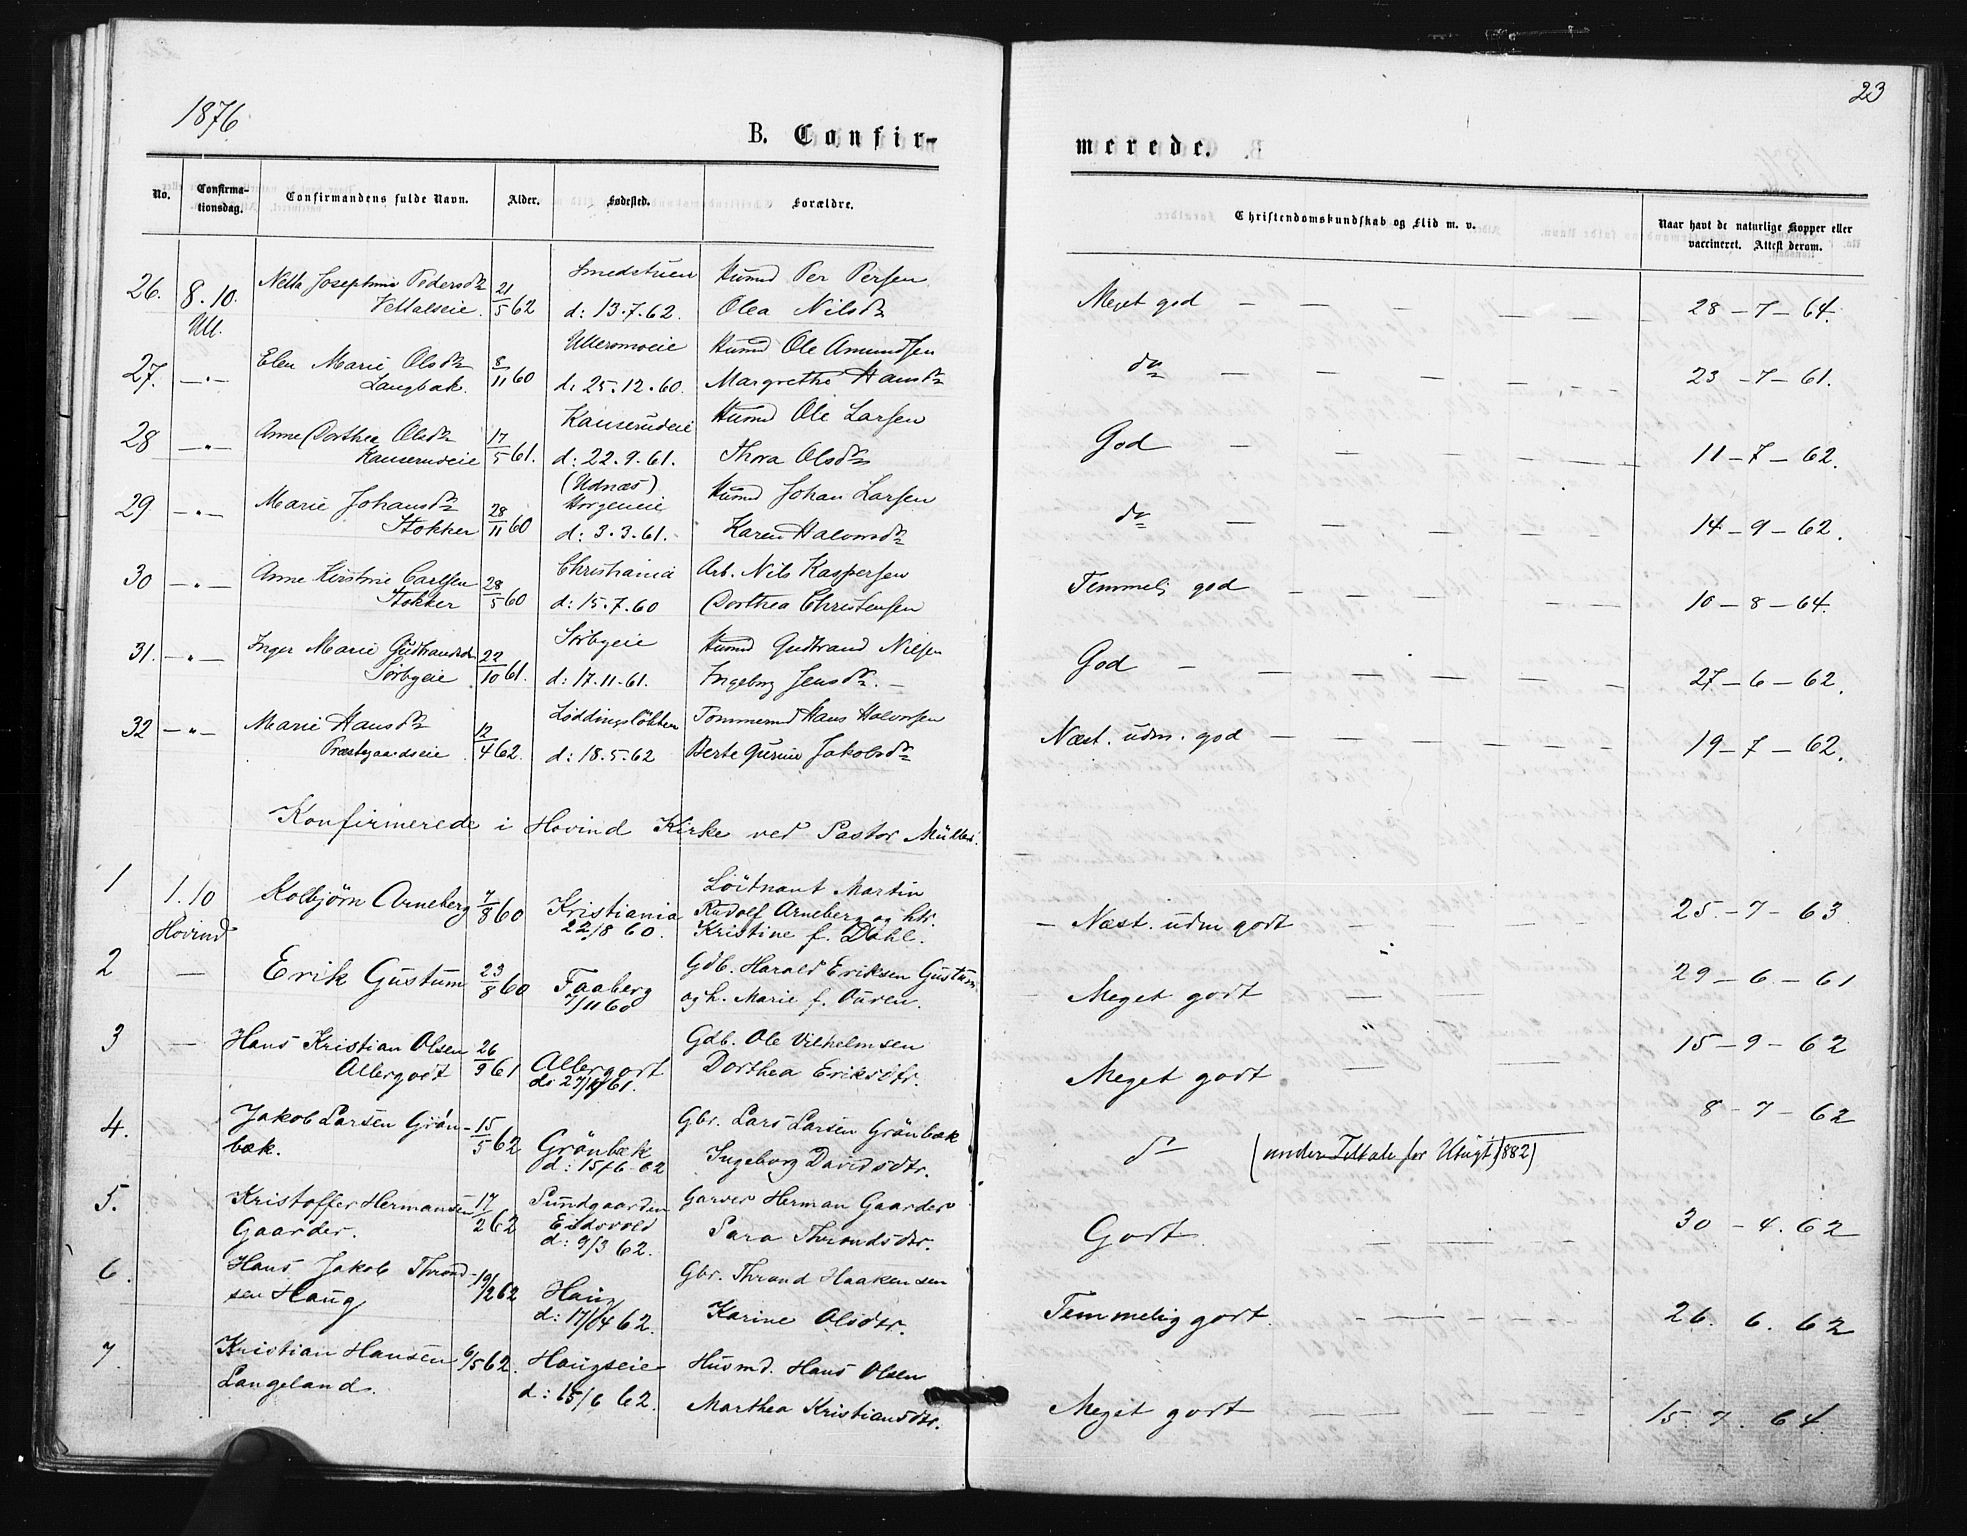 1876
23
B. Confir-
merede.
No.
Confirma-
tionsdag.
Confirmandens fulde Navn.
Alder.
Fødested.
Forældre.
Christendomskundskab og Flid m. v.
Naar havt de naturlige Kopper eller
vaccineret. Attest derom.
26. 8.10. Netta Josephine Pedersdtr 21/5 62 Smedstuen Husmd Per Persen Meget god — — — — — — 28-7-64.
Ull. Vettalseie. d: 13.7.62. Olea Nilsdtr
27. —"— Elen Marie Olsdtr 8/11 60 Ulleromoeie Husmd Ole Amundsen do — — — — — — 23-7-61.
Langbak. d: 25.12.60. Margrethe Hansdtr
28 —"— Anne Dorthea Olsdtr 17/5 61. Kauserudeie Husmd Ole Larsen God — — — — — — 11-7-62.
Kauserudeie d: 22.9.61. Thora Olsdtr
(Udnæs)
29 —"— Marie Johansdtr 28/11 60 Horgeneie Husmd Johan Larsen do — — — — — — 14-9-62.
Stokker d: 3.3.61. Karen Halvorsdtr
30 —"— Anne Kirstine Carlsen 28/5 60 Christiania Arb. Nils Kaspersen Temmelig god — — — — — 10-8-64.
Stokker d: 15.7.60 Dorthea Christensen
31. —"— Inger Marie Gudbrandsdr 22/10 61. Sörbyeie Husmd Gudbrand Nilsen God — — — — — — 27-6-62.
Sörbyeie d: 17.11.61. Ingeborg Jensdtr. —
32 —"— Marie Hansdtr 12/4 62. Löddingslökken Tömmermd Hans Halvorsen Næst. udm. god — — — — — — 19-7-62.
Præstgaardseie d: 18.5.62 Berte Gurine Jakobsdtr
Konfirmerede i Hovind Kirke ved Pastor Müller.
1 1.10 Kolbjørn Arneberg 7/8 60 Kristiania Löitnant Martin — Næst. udm godt 25-7-63
Hovind 22/8 60. Rudolf Arneberg og htr.
Kristine f. Dahl.
2 — Erik Gustum 23/8 60 Faaberg Gdb. Harald Eriksen Gustum Meget godt — " — 29-6-61
7/11 60 og h. Marie f. Ouren.
3 Hans Kristian Olsen 26/9 61 Allergodt Gdb. Ole Vilhelmsen Meget godt — " — 15-9-62
Allergodt d: 61. Dorthea Eriksdtr.
4. Jakob Larsen Grön- 15/5 62 Grönbæk Gbr. Lars Larsen Grönbæk do (under Tiltale for Utugt 1882) 8-7-62
bæk. d: 15/6.62 Ingeborg Davidsdtr.
5. Kristoffer Hermansen 17/2 62 Sundgaarden Garver Herman Gaarder Godt. — — 30-4.62
Gaarder. Eidsvold Sara Throndsdtr.
d: 9/3 62.
6. Hans Jakob Thrond- 19/2 62 Haug Gbr. Thrond Haakensen Temmelig godt. — — — — 26.6.62
sen Haug d: 17/04 62. Karine Olsdtr.
7. Kristian Hansen 6/5 62. Haugseie Husmd. Hans Olsen Meget godt — — — — — 15.7.64.
Langeland. d: 15/6 62. Marthea Kristiansdtr.